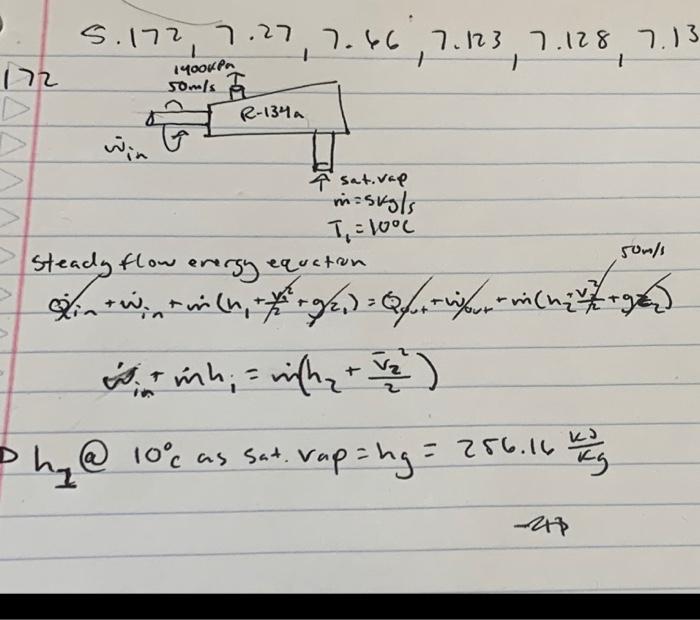 5.172, 7.27, 7.66, 7.123, 7.128, 7.13
172
1400kPa
50m/s
R-134a
Ẇin
sat. vap
ṁ = 5kg/s
T₁ = 10°C
Steady flow energy equation
50m/s
Q̇in + ẇin + ṁ(h₁ + v₁²/2 + gz₁) = Q̇out + ẇout + ṁ(h₂ + v₂²/2 + gz₂)
ẇin + ṁh₁ = ṁ(h₂ + v̄₂²/2)
h₁ @ 10°C as sat. vap = hg = 256.16 kJ/kg